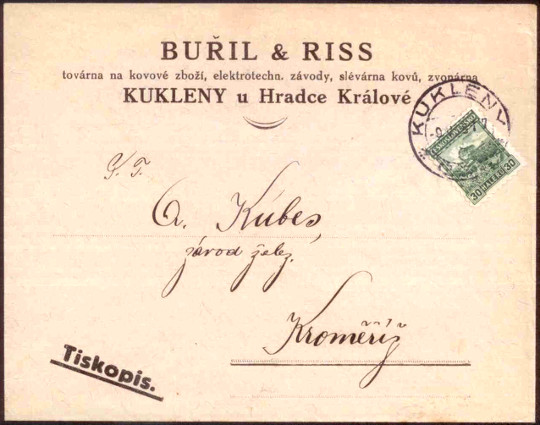 BUŘIL & RISS
továrna na kovové zboží, elektrotechn. závody, slévárna kovů, zvonárna
KUKLENY u Hradce Králové
KUKLENY
ČESKOSLOVENSKO
30 HALÉŘŮ 30
S. T.
A. Kúbes,
závod želez.
Kroměříž
Tiskopis.